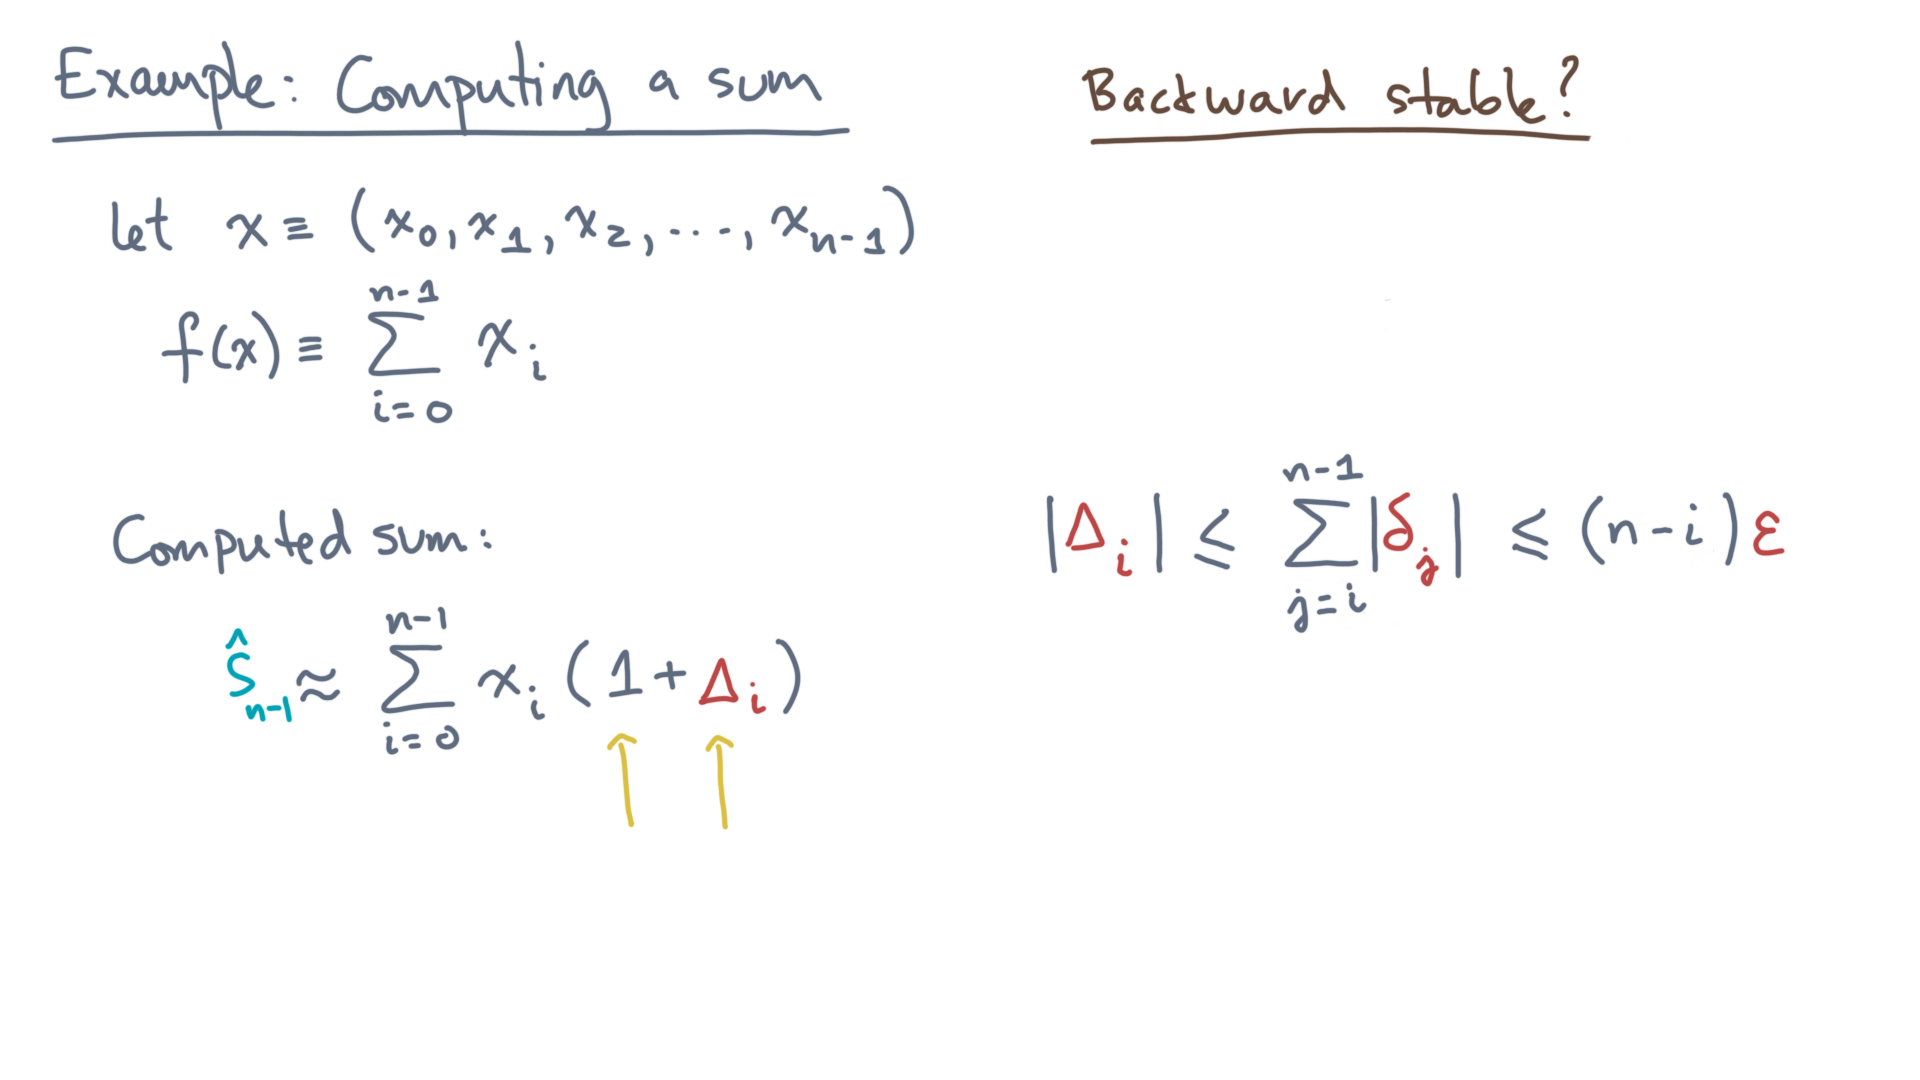 Example: Computing a sum
let x ≡ (x₀, x₁, x₂, ..., xₙ₋₁)
f(x) ≡ ∑_{i=0}^{n-1} x_i
Computed sum:
ŝ_{n-1} ≈ ∑_{i=0}^{n-1} x_i (1 + Δ_i)
Backward stable?
|Δ_i| ≤ ∑_{j=i}^{n-1} |δ_j| ≤ (n-i) ε